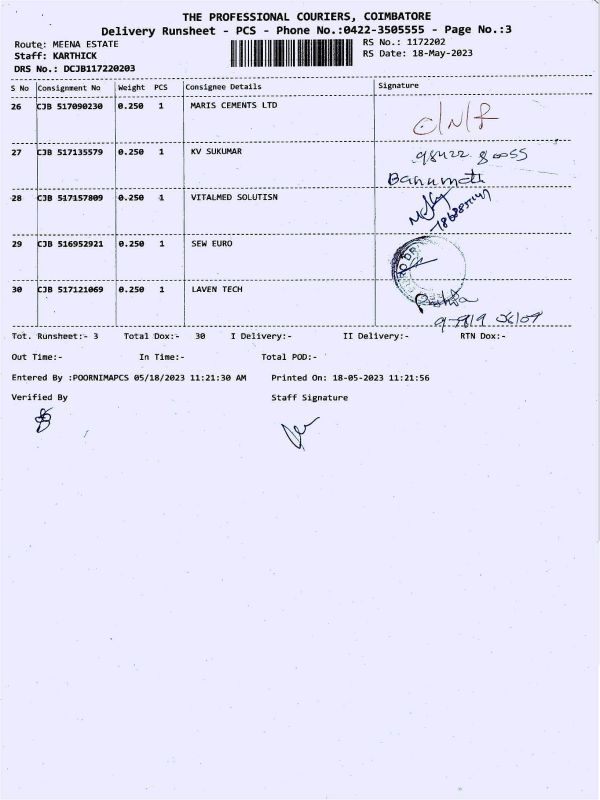 THE PROFESSIONAL COURIERS, COIMBATORE
Delivery Runsheet - PCS - Phone No.:0422-3505555 - Page No.:3
Route: MEENA ESTATE RS No.: 1172202
Staff: KARTHICK RS Date: 18-May-2023
DRS No.: DCJB117220203
S No Consignment No Weight PCS Consignee Details Signature
26 CJB 517090230 0.250 1 MARIS CEMENTS LTD
C/N/R
27 CJB 517135579 0.250 1 KV SUKUMAR
Banumati
28 CJB 517157809 0.250 1 VITALMED SOLUTISN
29 CJB 516952921 0.250 1 SEW EURO
30 CJB 517121069 0.250 1 LAVEN TECH
Tot. Runsheet:- 3 Total Dox:- 30 I Delivery:- II Delivery:- RTN Dox:-
Out Time:- In Time:- Total POD:-
Entered By :POORNIMAPCS 05/18/2023 11:21:30 AM Printed On: 18-05-2023 11:21:56
Verified By Staff Signature